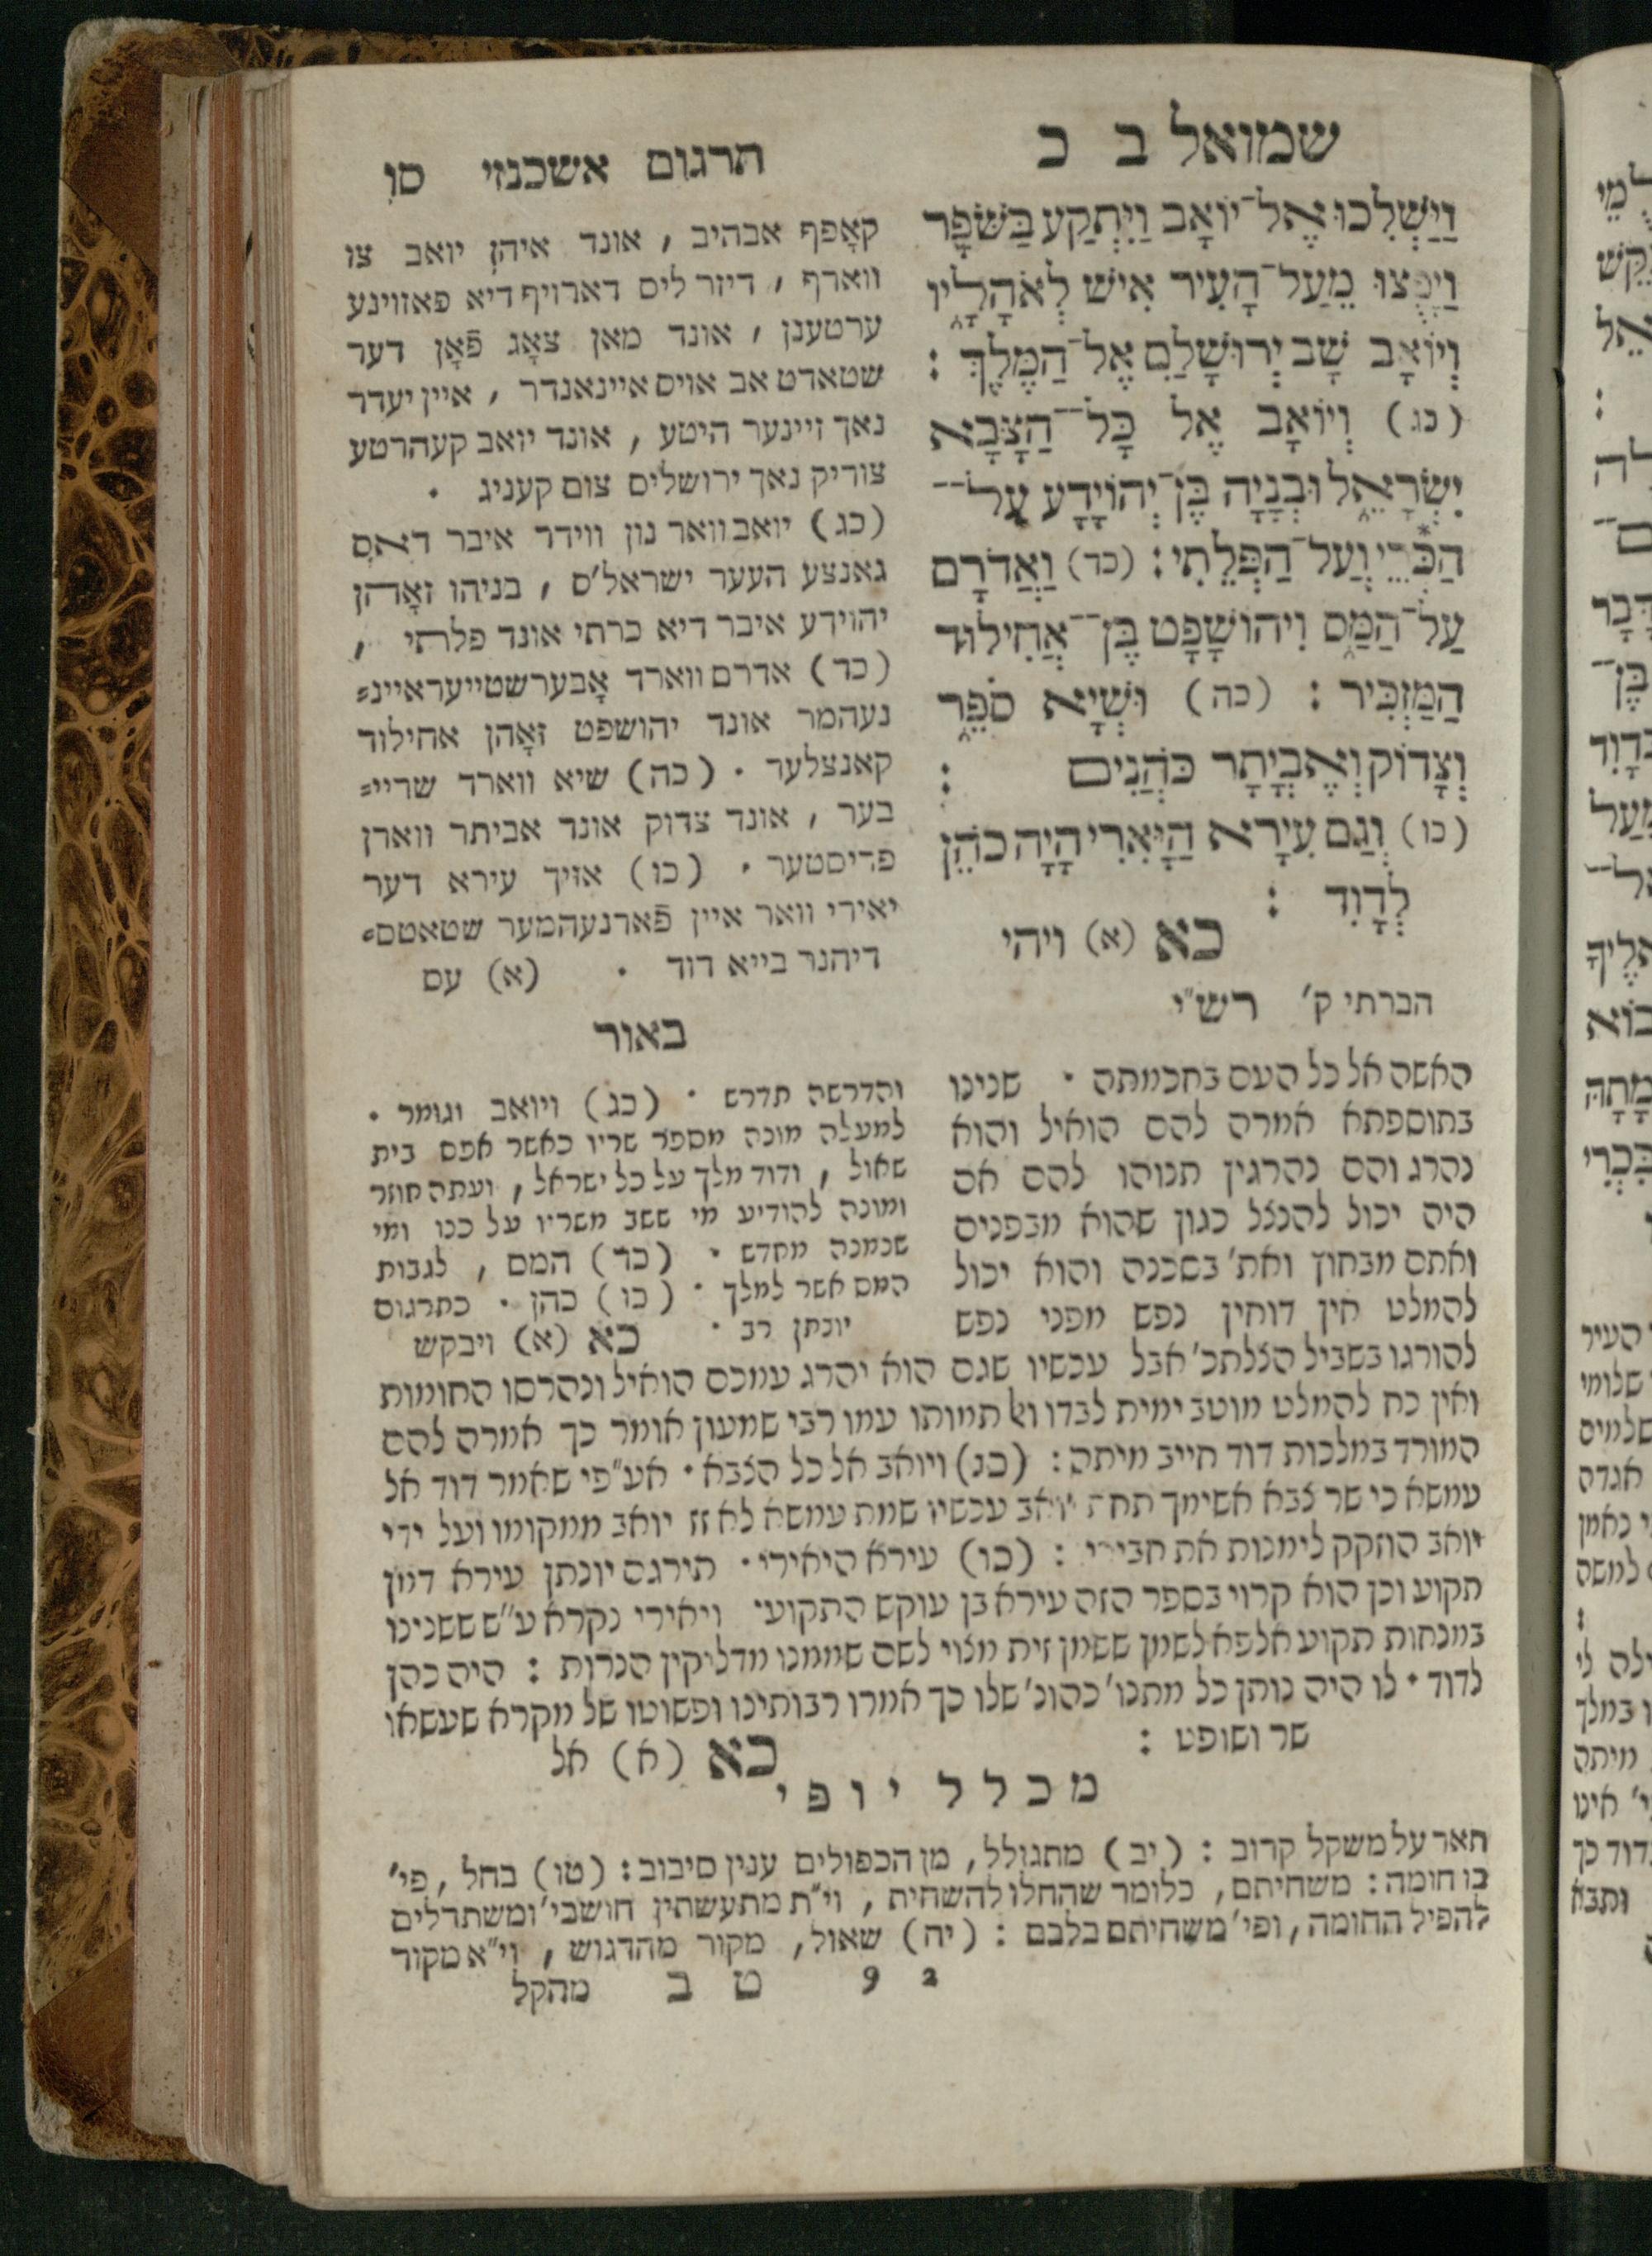 שמואל ב כ
וַיַּשְׁלִכוּ אֶל־יוֹאָב וַיִּתְקַע בַּשֹּׁפָר
וַיָּפֻצוּ מֵעַל־הָעִיר אִישׁ לְאֹהָלָיו
וְיוֹאָב שָׁב יְרוּשָׁלַםִ אֶל־הַמֶּלֶךְ :
(כג) וְיוֹאָב אֶל כָּל־הַצָּבָא
יִשְׂרָאֵל וּבְנָיָה בֶּן־יְהוֹיָדָע עַל־
הַכְּרֵי וְעַל־הַפְּלֵתִי : (כד) וַאֲדֹרָם
עַל־הַמַּס וִיהוֹשָׁפָט בֶּן־אֲחִילוּד
הַמַּזְכִּיר : (כה) וּשְׁיָא סֹפֵר
וְצָדוֹק וְאֶבְיָתָר כֹּהֲנִים :
(כו) וְגַם עִירָא הַיָּאִרִי הָיָה כֹהֵן
לְדָוִד :
כא (א) ויהי
הכרתי ק׳
תרגום אשכנזי סו
קאָפף אבהיב , אונד איהן יואב צו
ווארף , דיזר ליס דארויף דיא פאזוינע
ערטענן , אונד מאן צאָג פֿאָן דער
שטאדט אב אויס איינאנדר , איין יעדר
נאך זיינער היטע , אונד יואב קעהרטע
צוריק נאך ירושלים צום קעניג .
(כג) יואב וואר נון ווידר איבר דאס
גאנצע העער ישראל׳ס , בניהו זאָהן
יהוידע איבר דיא כרתי אונד פלתי ,
(כד) אדרם ווארד אָבערשטייעראיינ=
נעהמר אונד יהושפט זאָהן אחילוד
קאנצלער . (כה) שיא ווארד שריי=
בער , אונד צדוק אונד אביתר ווארן
פריסטער . (כו) אויך עירא דער
יאירי וואר איין פֿארנעהמער שטאטס=
דיהנר בייא דוד . (א) עס
רש״י
האשה אל כל העם בחכמתה . שנינו
בתוספתא אמרה להם הואיל והוא
נהרג והם נהרגין תנוהו להם אם
היה יכול להנצל כגון שהוא מבפנים
ואתם מבחוץ ואת׳ בסכנה והוא יכול
להמלט אין דוחין נפש מפני נפש
להורגו בשביל הצלתכ׳ אבל עכשיו שגם הוא יהרג עמכם הואיל ונהרסו החומות
ואין כח להמלט מוטב ימית לבדו ואל תמותו עמו רבי שמעון אומר כך אמרה להם
המורד במלכות דוד חייב מיתה : (כג) ויואב אל כל הצבא . אע״פי שאמר דוד אל
עמשא כי שר צבא אשימך תחת יואב עכשיו שמת עמשא לא זז יואב ממקומו ועל ידי
יואב הוזקק לימנות את חביריו : (כו) עירא היאירי . תירגם יונתן עירא דמן
תקוע וכן הוא קרוי בספר הזה עירא בן עוקש התקועי ויאירי נקרא ע״ש ששנינו
במנחות תקוע אלפא לשמן ששמן זית מצוי לשם שממנו מדליקין הנרות : היה כהן
לדוד . לו היה נותן כל מתנו׳ כהונ׳ שלו כך אמרו רבותינו ופשוטו של מקרא שעשאו
שר ושופט :
כא (א) אל
באור
והדרשה תדרש . (כג) ויואב וגומר .
למעלה מונה מספר שריו כאשר אפס בית
שאול , ודוד מלך על כל ישראל , ועתה חוזר
ומונה להודיע מי ששב משריו על כנו ומי
שנמנה מחדש . (כד) המס , לגבות
המס אשר למלך . (כו) כהן . כתרגום
יונתן רב . כא (א) ויבקש
מכלל יופי
תאר על משקל קרוב : (יב) מתגולל , מן הכפולים ענין סיבוב : (טו) בחל , פי׳
בו חומה : משחיתם , כלומר שהחלו להשחית , וי״ת מתעשתין חושבי׳ ומשתדלים
להפיל החומה , ופי׳ משחיתם בלבם : (יח) שאול , מקור מהדגוש , וי״א מקור
2 9 ט ב מהקל